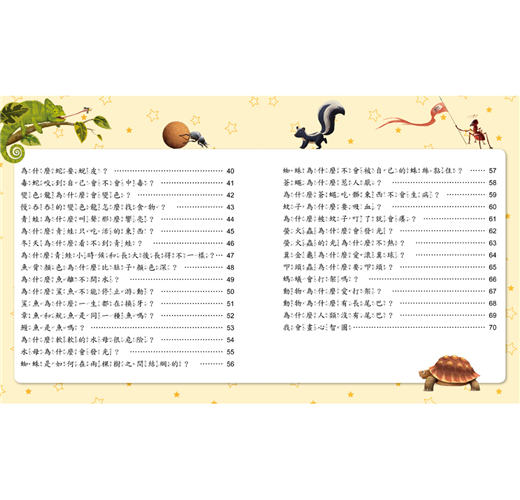 為什麼蛇要蛻皮？ 40
毒蛇咬到自己會不會中毒？ 41
變色龍為什麼會變色？ 42
慢吞吞的變色龍怎麼找食物？ 43
青蛙為什麼叫聲那麼響亮？ 44
為什麼青蛙只吃活的東西？ 45
冬天為什麼看不到青蛙？ 46
為什麼青蛙小時候和長大後長得不一樣？ 47
魚背顏色為什麼比肚子顏色深？ 48
為什麼魚離不開水？ 49
為什麼鯊魚不能停止游動？ 50
鯊魚為什麼一生都在換牙？ 51
章魚和魷魚是同一種魚嗎？ 52
鯨魚是魚嗎？ 53
為什麼軟軟的水母很危險？ 54
水母為什麼會發光？ 55
蜘蛛是如何在兩棵樹之間結網的？ 56
蜘蛛為什麼不會被自己的蜘蛛絲黏住？ 57
蒼蠅為什麼惹人厭？ 58
為什麼蒼蠅吃髒東西不會生病？ 59
蚊子為什麼要吸血？ 60
為什麼被蚊子叮了就會癢？ 61
螢火蟲為什麼會發光？ 62
螢火蟲的光為什麼不熱？ 63
糞金龜為什麼愛滾糞球？ 64
叩頭蟲為什麼要叩頭？ 65
螞蟻會打架嗎？ 66
動物為什麼愛打架？ 67
動物為什麼有長尾巴？ 68
為什麼人類沒有尾巴？ 69
我會畫心智圖 70